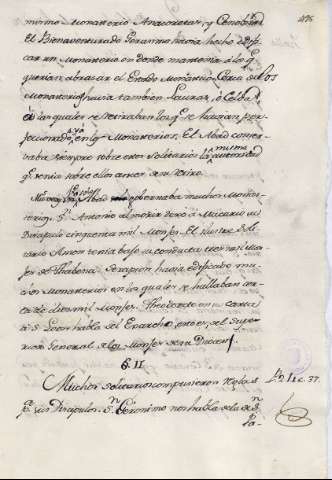 mismo Monasterio Anacoretas, y Cenobitas
El Bienaventurado Geronimo havia hecho edifi-
car un Monasterio en donde mantenia a los q.e
querian abrasar el Estado Monastico. Cerca de los
Monasterios havia tambien Lauras, ò Celdas
à las quales se retiraban los q.e se havian per-
feccionado ya en los Monasterios. El Abad conser-
vaba siempre sobre estos Solitarios la misma autoridad
q.e tenia sobre ellos antes de su retiro.
Abad gobernaba muchos Monas-
terios. S. Antonio al morir dexó à Macario su
Discipulo cinquenta mil Monjes. El ilustre Soli-
tario Amon tenia bajo su conducta tres mil Mon-
jes de Thabena. Serapion havia edificado mu-
chos Monasterios en los quales se hallaban cer-
ca de diez mil Monjes. Theodoreto en su carta
à S. Leon habla del Exarcho, esto es, del Supe-
rior General de los Monjes de su Diocesi.
§. II
Muchos solitarios compusieron Reglas
p.a sus Discipulos. S.n Geronimo nos habla de la de S.n
Pa-